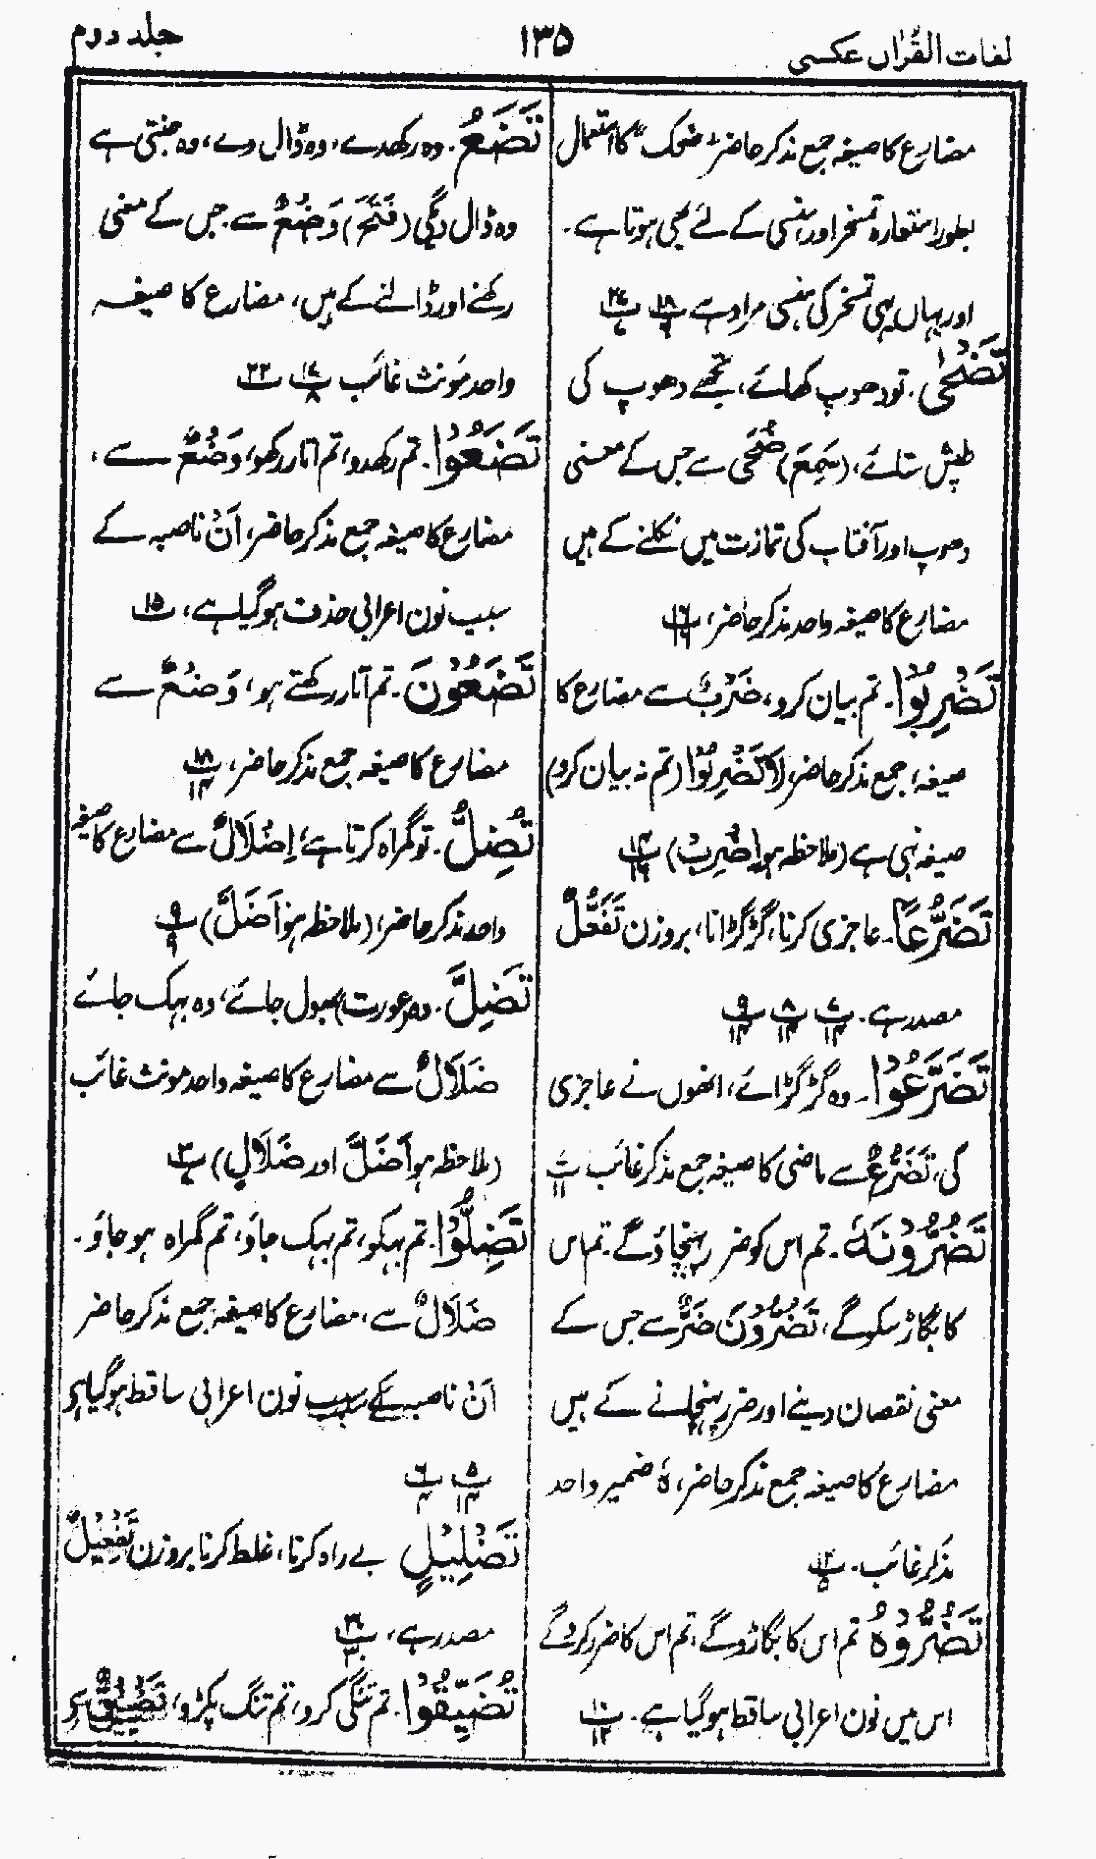 لغات القُرآن عکسی
۱۳۵
جلد دوم
مضارع کا صیغہ جمع مذکر حاضر، ضحک کا استعمال
بطور استعارہ تمسخر اور ہنسی کے لئے بھی ہوتا ہے۔
اور یہاں یہی تمسخر کی ہنسی مراد ہے
تَضْحٰی۔ تو دھوپ کھائے، تجھے دھوپ کی
طپش ستائے، (سَمِعَ) ضُحًی سے جس کے معنی
دھوپ اور آفتاب کی تمازت میں نکلنے کے ہیں
مضارع کا صیغہ واحد مذکر حاضر، ۱۶
تَضْرِبُوْا۔ تم بیان کرو، ضَرْبٌ سے مضارع کا
صیغہ، جمع مذکر حاضر، لَا تَضْرِبُوْا (تم نہ بیان کرو)
صیغہ نہی ہے (ملاحظہ ہو اِضْرِبْ) ۱۴
تَضَرُّعًا۔ عاجزی کرنا، گڑگڑانا، بروزن تَفَعُّلٌ
مصدر ہے۔ ۷ ۸ ۹
۱۴ ۱۴ ۱۴
تَضَرَّعُوْا۔ وہ گڑگڑائے، انھوں نے عاجزی
کی، تَضَرُّعٌ سے ماضی کا صیغہ جمع مذکر غائب
۱۱
تَضُرُّوْنَهٗ۔ تم اس کو ضرر پہنچاؤ گے۔ تم اس
کا بگاڑ سکو گے، تَضُرُّوْنَ ضَرٌّ سے جس کے
معنی نقصان دینے اور ضرر پہنچانے کے ہیں
مضارع کا صیغہ جمع مذکر حاضر، ہٗ ضمیر واحد
مذکر غائب۔ ۱۲
۵
تَضُرُّوْهُ تم اس کا بگاڑو گے، تم اس کا ضرر کرو گے
اس میں نون اعرابی ساقط ہو گیا ہے۔ ۱۰
۱۲
تَضَعُ۔ وہ رکھدے، وہ ڈال دے، وہ جنتی ہے
وہ ڈال دیگی (فَتَحَ) وَضْعٌ سے۔ جس کے معنی
رکھنے اور ڈالنے کے ہیں، مضارع کا صیغہ
واحد مونث غائب ۱۷ ۲۲
۸
تَضَعُوْا۔ تم رکھدو، تم اتار رکھو، وَضْعٌ سے،
مضارع کا صیغہ جمع مذکر حاضر، اَنْ ناصبہ کے
سبب نون اعرابی حذف ہو گیا ہے، ۱۵
تَضَعُوْنَ۔ تم اتار رکھتے ہو، وَضْعٌ سے
مضارع کا صیغہ جمع مذکر حاضر، ۱۸
۱۴
تُضِلُّ۔ تو گمراہ کرتا ہے، اِضْلَالٌ سے مضارع کا صیغہ
واحد مذکر حاضر، (ملاحظہ ہو اَضَلَّ) ۹
۹
تَضِلَّ۔ وہ (عورت) بھول جائے، وہ بہک جائے
ضَلَالٌ سے مضارع کا صیغہ واحد مونث غائب
(ملاحظہ ہو اَضَلَّ اور ضَلَالٍ) ۳
تَضِلُّوْا۔ تم بہکو، تم بہک جاؤ، تم گمراہ ہو جاؤ۔
ضَلَالٌ سے، مضارع کا صیغہ جمع مذکر حاضر
اَنْ ناصبہ کے سبب نون اعرابی ساقط ہو گیا ہے
۵ ۶
۱۴ ۴
تَضْلِیْلٍ بے راہ کرنا، غلط کرنا بروزن تَفْعِیْلٌ
مصدر ہے، ۳۰
تُضَیِّقُوْا۔ تم تنگی کرو، تم تنگ پکڑو، تَضْیِیْقٌ سے